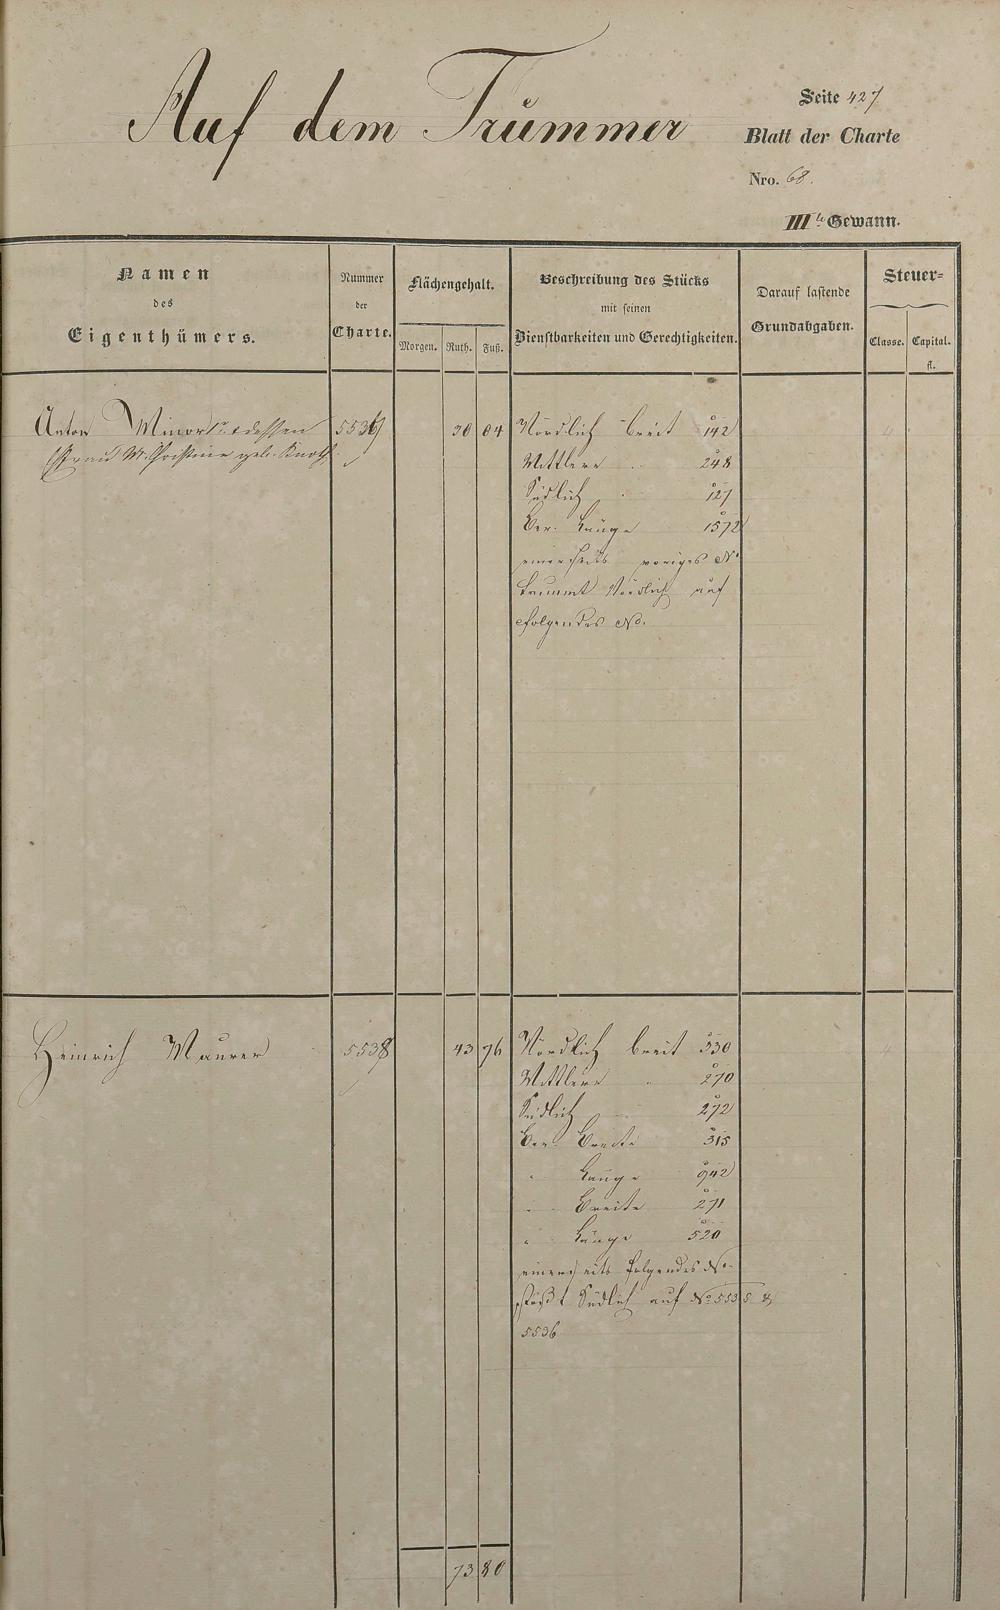 Auf dem Trümmer
Seite 427
Blatt der Charte
Nro. 68.
IIIte Gewann.
Namen
des
Eigenthümers.
Nummer
der
Charte.
Flächengehalt.
Morgen. Ruth. Fuß.
Beschreibung des Stücks
mit seinen
Dienstbarkeiten und Gerechtigkeiten.
Darauf lastende
Grundabgaben.
Steuer-
Classe. Capital.
fl.
Anton Minor dessen
Ehefrau M. Christine geb.
30 04
Nördlich breit 142
Mittlere 248
Südlich 127
Ber. Länge 1572
einerseits voriges No
krummt Nördlich auf
folgendes No.
Heinrich Maurer
5538
43 76
Nördlich breit 330
Mittlere " 270
Südlich 272
Ber. Breite 315
" Länge 942
" Breite 271
" Länge 520
einerseits folgendes No.
stößt Südlich auf No 5535 &
5536
73 80